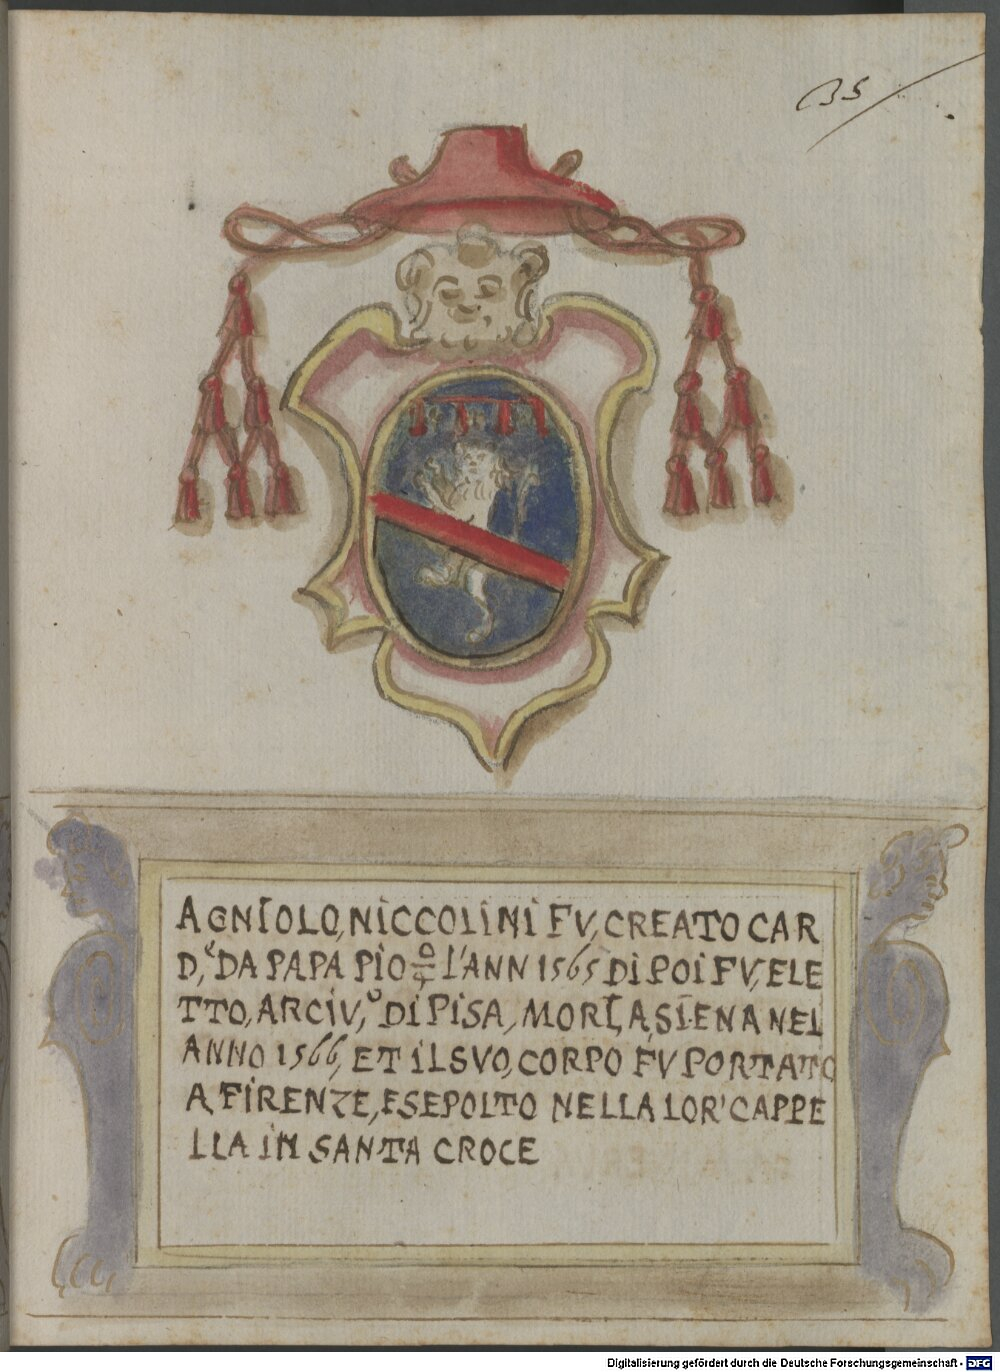 135
AGNIOLO, NICCOLINI FV, CREATO CAR
D,ᵉ DA PAPA PIO 4º L'ANN 1565 DI POI FV, ELE
TTO, ARCIV,º DI PISA, MORI, A SIENA NEL
ANNO 1566, ET IL SVO, CORPO FV PORTATO
A FIRENZE, E SEPOLTO NELLA LOR' CAPPE
LLA IN SANTA CROCE
Digitalisierung gefördert durch die Deutsche Forschungsgemeinschaft - DFG